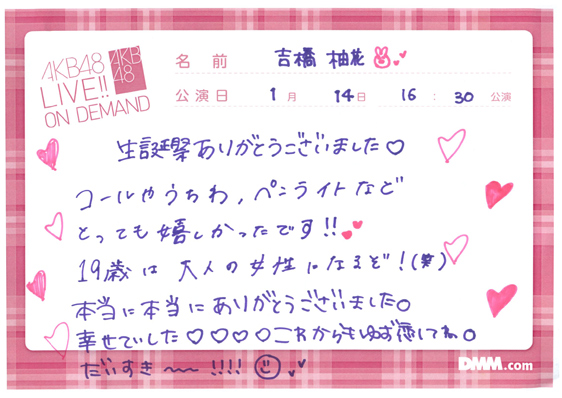 AKB48
LIVE!!
ON DEMAND
AKB
48
名前 吉橋 柚花
公演日 1月 14日 16:30 公演
生誕祭ありがとうございました♡
コールやうちわ、ペンライトなど
とっても嬉しかったです!!
19歳は大人の女性になるぞ!(笑)
本当に本当にありがとうございました。
幸せでした♡♡♡♡これからもゆず恋してね。
だいすき〜〜!!!!
DMM.com